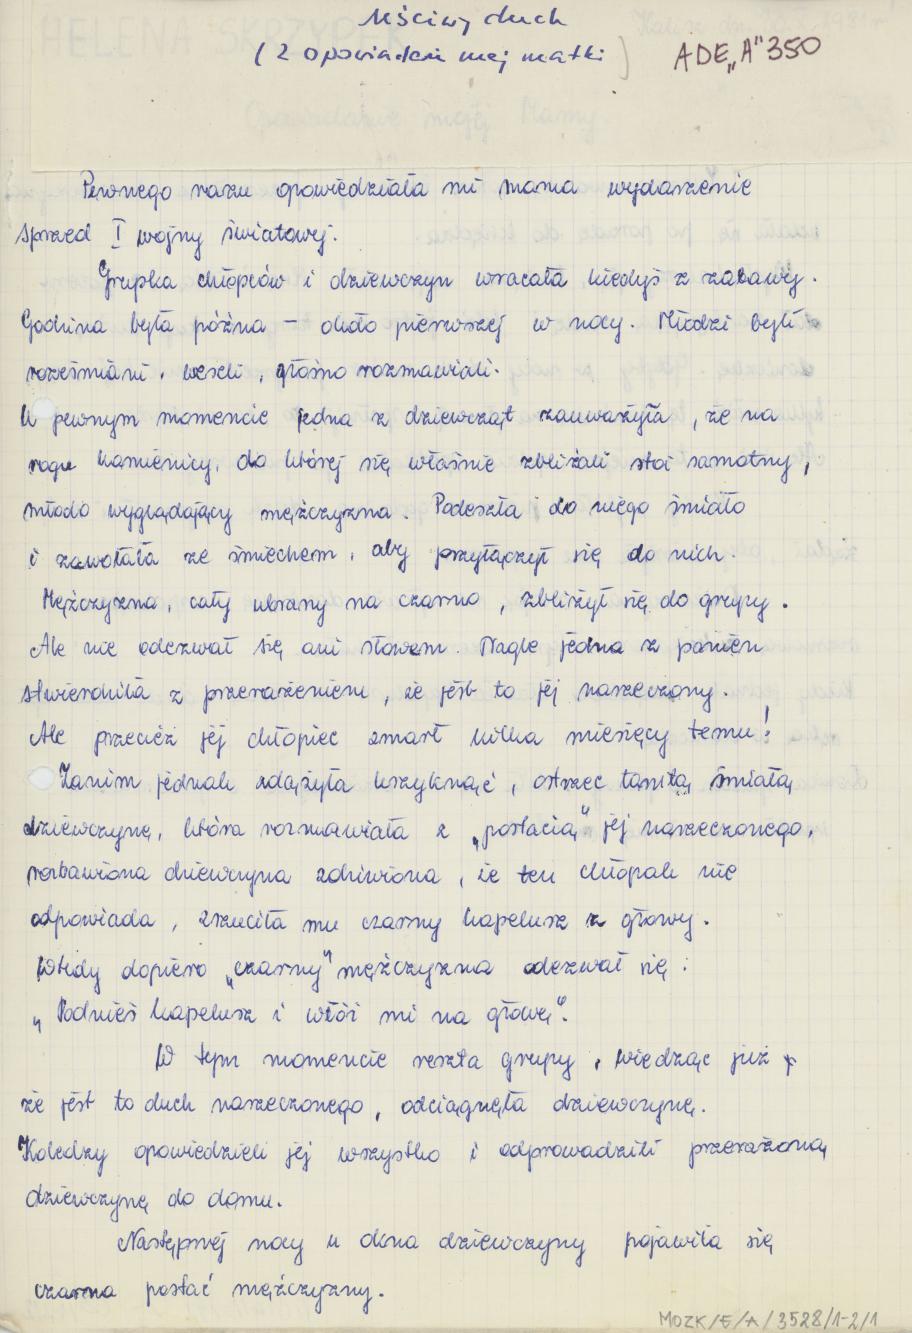 Mściwy duch
(z opowiadań mej matki)
ADE „A" 350
Pewnego razu opowiedziała mi mama wydarzenie
sprzed I wojny światowej.
Grupka chłopców i dziewczyn wracała kiedyś z zabawy.
Godzina była późna – około pierwszej w nocy. Młodzi byli
roześmiani, weseli, głośno rozmawiali.
W pewnym momencie jedna z dziewcząt zauważyła, że na
rogu kamienicy, do której się właśnie zbliżali stoi samotny,
młodo wyglądający mężczyzna. Podeszła do niego śmiało
i zawołała ze śmiechem, aby przyłączył się do nich.
Mężczyzna, cały ubrany na czarno, zbliżył się do grupy.
Ale nie odezwał się ani słowem. Nagle jedna z panien
stwierdziła z przerażeniem, że jest to jej narzeczony.
Ale przecież jej chłopiec zmarł kilka miesięcy temu!
Zanim jednak zdążyła krzyknąć, ostrzec tamtą śmiałą
dziewczynę, która rozmawiała z „postacią" jej narzeczonego,
rozbawiona dziewczyna zdziwiona, że ten chłopak nie
odpowiada, zrzuciła mu czarny kapelusz z głowy.
Wtedy dopiero „czarny" mężczyzna odezwał się:
„Podnieś kapelusz i włóż mi na głowę".
W tym momencie reszta grupy, wiedząc już
że jest to duch narzeczonego, odciągnęła dziewczynę.
Koledzy opowiedzieli jej wszystko i odprowadzili przerażoną
dziewczynę do domu.
Następnej nocy u okna dziewczyny pojawiła się
czarna postać mężczyzny.
MOZK/E/A/3528/1-2/1